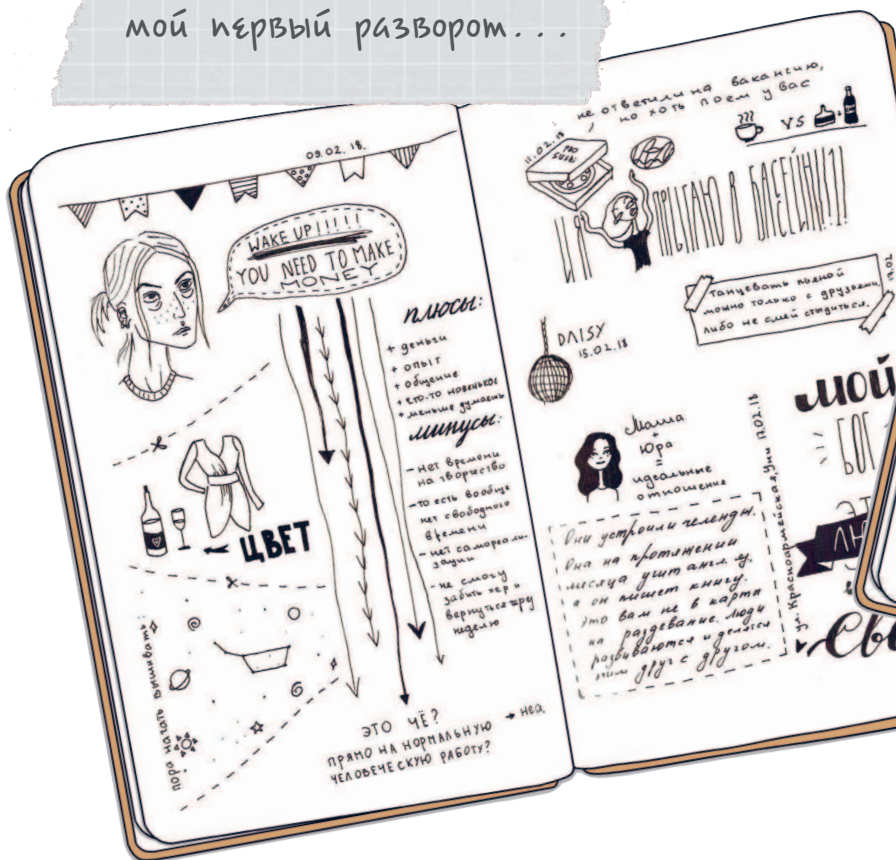 мой первый разворот...
09.02.18.
WAKE UP!!!!!
YOU NEED TO MAKE
MONEY
плюсы:
+ деньги
+ опыт
+ общение
+ что-то новенькое
+ меньше думаешь
минусы:
- нет времени
на творчество
- то есть вообще
нет свободного
времени
- нет самореали-
зации
- не смогу
забить хер и
вернуться через
неделю
ЦВЕТ
пора начать вышивать:
ЭТО ЧЁ?
ПРЯМО НА НОРМАЛЬНУЮ
ЧЕЛОВЕЧЕСКУЮ РАБОТУ?
→ неа.
не ответили на вакансию,
но хоть поем у вас
11.02.18
VS
В БАСЕЙН!!1!
танцевать пьяной
можно только с друзьями,
либо не смей стыдиться.
17.02
DAISY
15.02.18
Маша
+
Юра
=
идеальные
отношения
Они устроили челендж.
Она на протяжении
месяца учит англ. яз.
а он пишет книгу.
Это вам не в карты
на раздевание. Люди
развиваются и делятся
этим друг с другом.
ул. Красноармейская, Уни 17.02.18
МОЙ
БОГ
ЭТ
ЛЮ
СВ